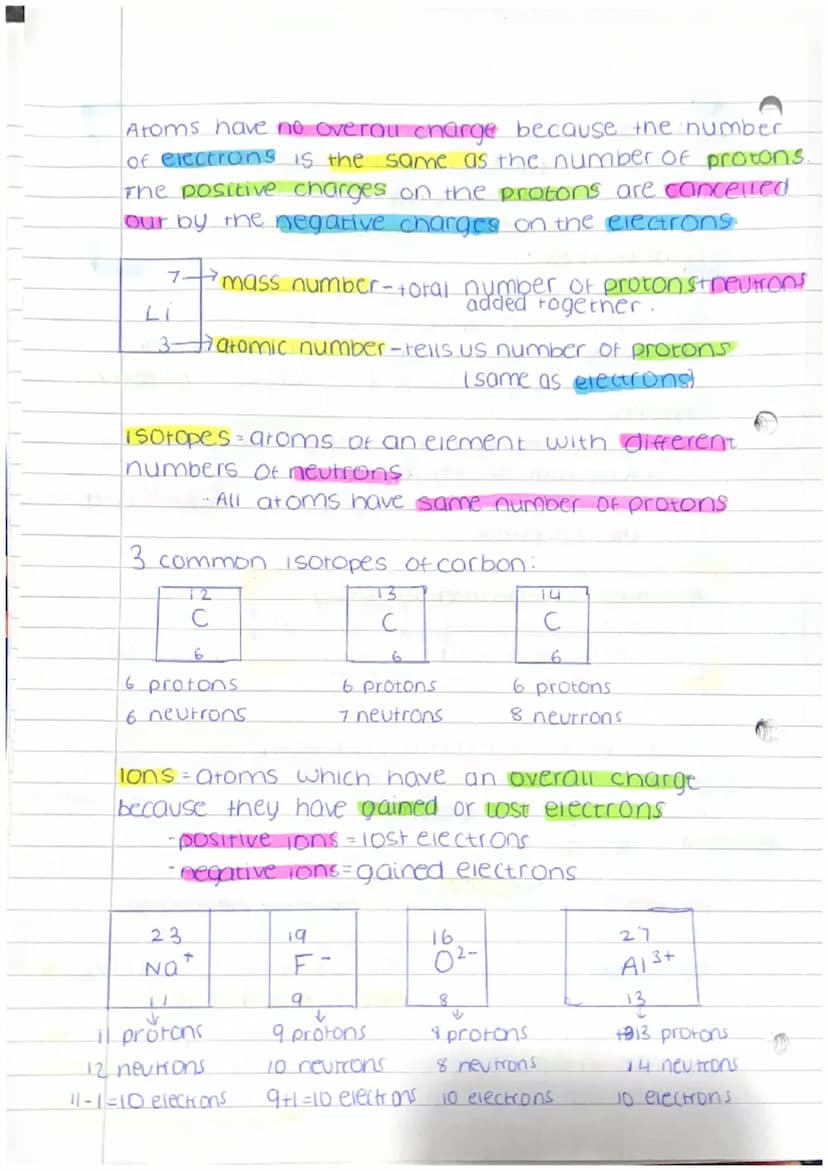 Atoms have no overall charge because the number
of electrons is the same as the number of protons.
The positive charges on the protons are cancelled
out by the negative charges on the electrons.
7 → mass number - total number of protons + neutrons
added together.
Li
3 → atomic number - tells us number of protons
(same as electrons)
Isotopes = atoms of an element with different
numbers of neutrons
· All atoms have same number of protons
3 common isotopes of carbon:
12 13 14
C C C
6 6 6
6 protons 6 protons 6 protons
6 neutrons 7 neutrons 8 neutrons
Ions = atoms which have an overall charge
because they have gained or lost electrons
- positive ions = lost electrons
- negative ions = gained electrons
23 19 16 27
Na⁺ F⁻ O²⁻ Al³⁺
11 9 8 13
11 protons 9 protons 8 protons 13 protons
12 neutrons 10 neutrons 8 neutrons 14 neutrons
11-1=10 electrons 9+1=10 electrons 10 electrons 10 electrons